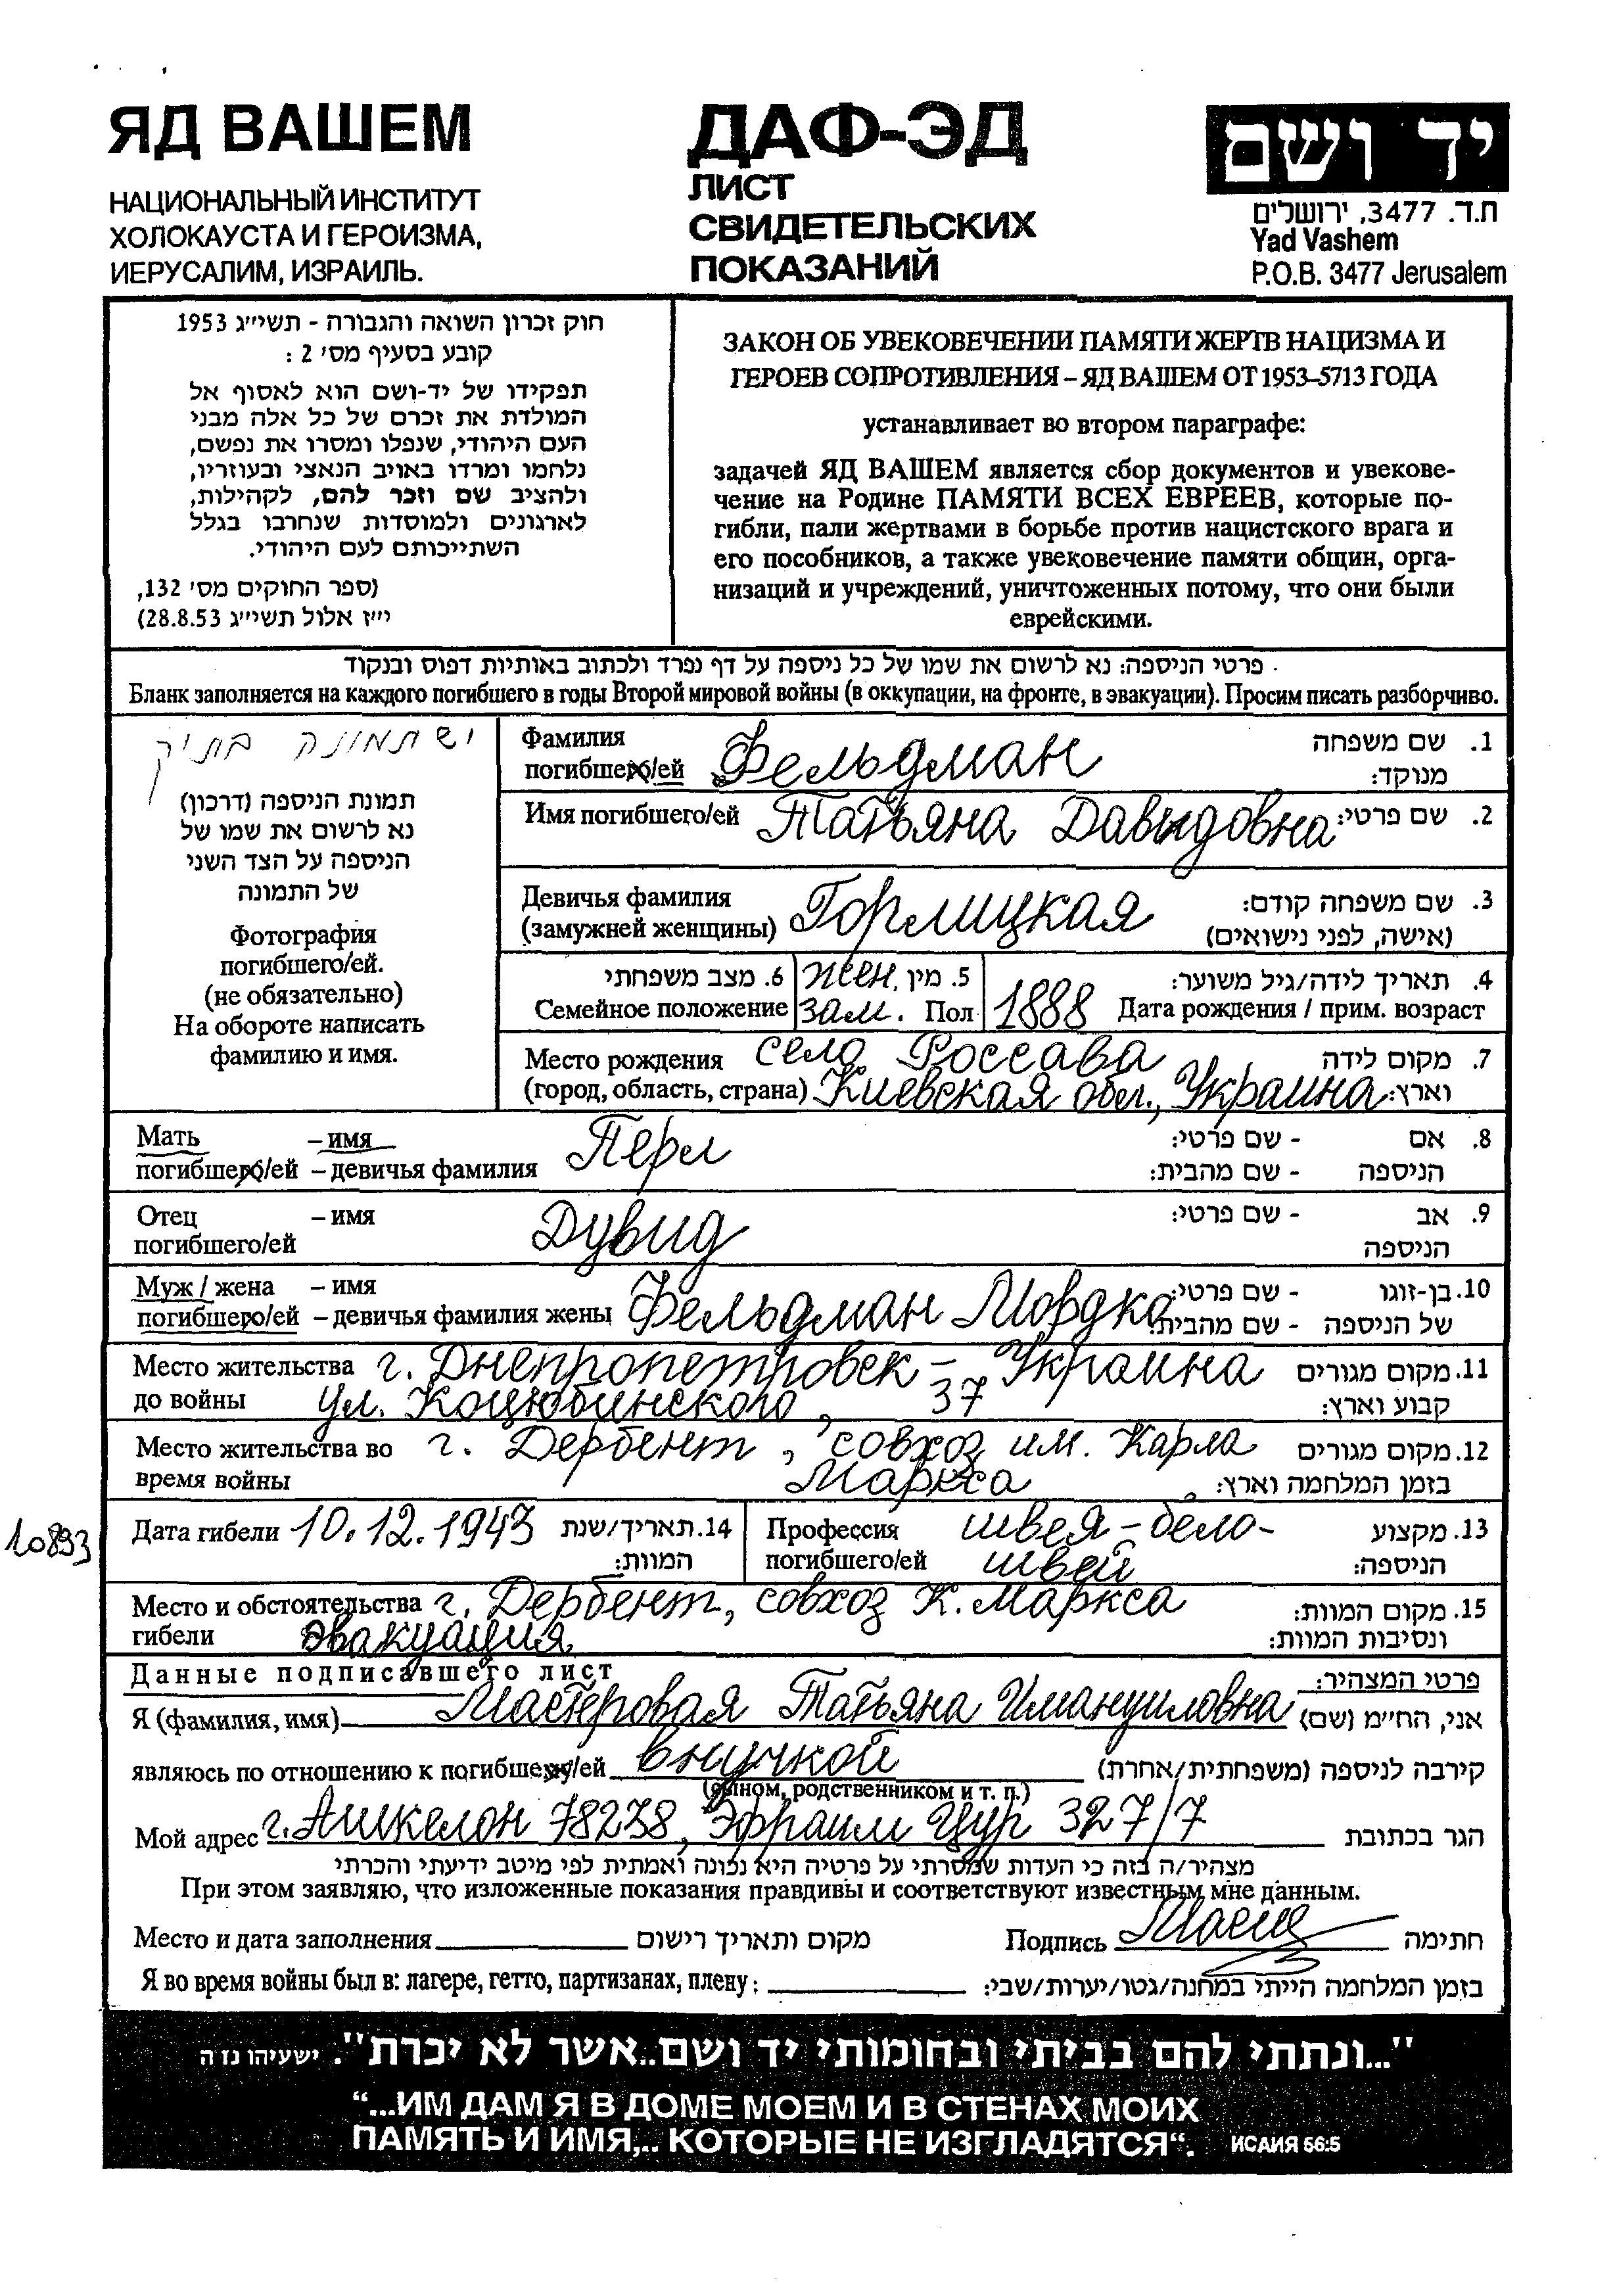 ЯД ВАШЕМ
НАЦИОНАЛЬНЫЙ ИНСТИТУТ
ХОЛОКАУСТА И ГЕРОИЗМА,
ИЕРУСАЛИМ, ИЗРАИЛЬ.
ДАФ-ЭД
ЛИСТ
СВИДЕТЕЛЬСКИХ
ПОКАЗАНИЙ
יד ושם
ת.ד. 3477, ירושלים
Yad Vashem
P.O.B. 3477 Jerusalem
חוק זכרון השואה והגבורה - תשי״ג 1953
קובע בסעיף מס׳ 2 :
תפקידו של יד-ושם הוא לאסוף אל
המולדת את זכרם של כל אלה מבני
העם היהודי, שנפלו ומסרו את נפשם,
נלחמו ומרדו באויב הנאצי ובעוזריו,
ולהציב שם וזכר להם, לקהילות,
לארגונים ולמוסדות שנחרבו בגלל
השתייכותם לעם היהודי.
(ספר החוקים מס׳ 132,
י״ז אלול תשי״ג 28.8.53)
ЗАКОН ОБ УВЕКОВЕЧЕНИИ ПАМЯТИ ЖЕРТВ НАЦИЗМА И
ГЕРОЕВ СОПРОТИВЛЕНИЯ – ЯД ВАШЕМ ОТ 1953–5713 ГОДА
устанавливает во втором параграфе:
задачей ЯД ВАШЕМ является сбор документов и увекове-
чение на Родине ПАМЯТИ ВСЕХ ЕВРЕЕВ, которые по-
гибли, пали жертвами в борьбе против нацистского врага и
его пособников, а также увековечение памяти общин, орга-
низаций и учреждений, уничтоженных потому, что они были
еврейскими.
פרטי הניספה: נא לרשום את שמו של כל ניספה על דף נפרד ולכתוב באותיות דפוס ובנקוד
Бланк заполняется на каждого погибшего в годы Второй мировой войны (в оккупации, на фронте, в эвакуации). Просим писать разборчиво.
יש תמונה בתיק
תמונת הניספה (דרכון)
נא לרשום את שמו של
הניספה על הצד השני
של התמונה
Фотография
погибшего/ей.
(не обязательно)
На обороте написать
фамилию и имя.
Фамилия Фельдман 1. שם משפחה
погибшего/ей מנוקד:
Имя погибшего/ей Татьяна Давыдовна 2. שם פרטי:
Девичья фамилия Горлицкая 3. שם משפחה קודם:
(замужней женщины) (אישה, לפני נישואים)
6. מצב משפחתי жен. 5. מין 4. תאריך לידה/גיל משוער:
Семейное положение зам. Пол 1888 Дата рождения / прим. возраст
Место рождения село Россава 7. מקום לידה
(город, область, страна) Киевская обл., Украина וארץ:
Мать – имя Перл 8. אם - שם פרטי:
погибшего/ей – девичья фамилия הניספה - שם מהבית:
Отец – имя Дувид 9. אב - שם פרטי:
погибшего/ей הניספה
Муж / жена – имя Фельдман Мордко 10. בן-זוגו - שם פרטי:
погибшего/ей – девичья фамилия жены של הניספה - שם מהבית:
Место жительства г. Днепропетровск – Украина 11. מקום מגורים
до войны ул. Коцюбинского, 37 קבוע וארץ:
Место жительства во г. Дербент, совхоз им. Карла 12. מקום מגורים
время войны Маркса בזמן המלחמה וארץ:
10893
Дата гибели 10.12.1943 14. תאריך/שנת
המוות:
Профессия швея-бело- 13. מקצוע
погибшего/ей швей הניספה:
Место и обстоятельства г. Дербент, совхоз К. Маркса 15. מקום המוות:
гибели эвакуация ונסיבות המוות:
Данные подписавшего лист פרטי המצהיר:
Я (фамилия, имя) Мастеровая Татьяна Имануиловна אני, החי״מ (שם)
являюсь по отношению к погибшему/ей внучкой קירבה לניספה (משפחתית/אחרת)
(сыном, родственником и т. п.)
Мой адрес г. Ашкелон 78238, Эфраим Цур 327/7 הגר בכתובת
מצהיר/ה בזה כי העדות שמסרתי על פרטיה היא נכונה ואמתית לפי מיטב ידיעתי והכרתי
При этом заявляю, что изложенные показания правдивы и соответствуют известным мне данным.
Место и дата заполнения מקום ותאריך רישום Подпись חתימה
Я во время войны был в: лагере, гетто, партизанах, плену: בזמן המלחמה הייתי במחנה/גטו/יערות/שבי:
"...ונתתי להם בביתי ובחומותי יד ושם..אשר לא יכרת". ישעיהו נו ה
“...ИМ ДАМ Я В ДОМЕ МОЕМ И В СТЕНАХ МОИХ
ПАМЯТЬ И ИМЯ,.. КОТОРЫЕ НЕ ИЗГЛАДЯТСЯ“. ИСАИЯ 56:5